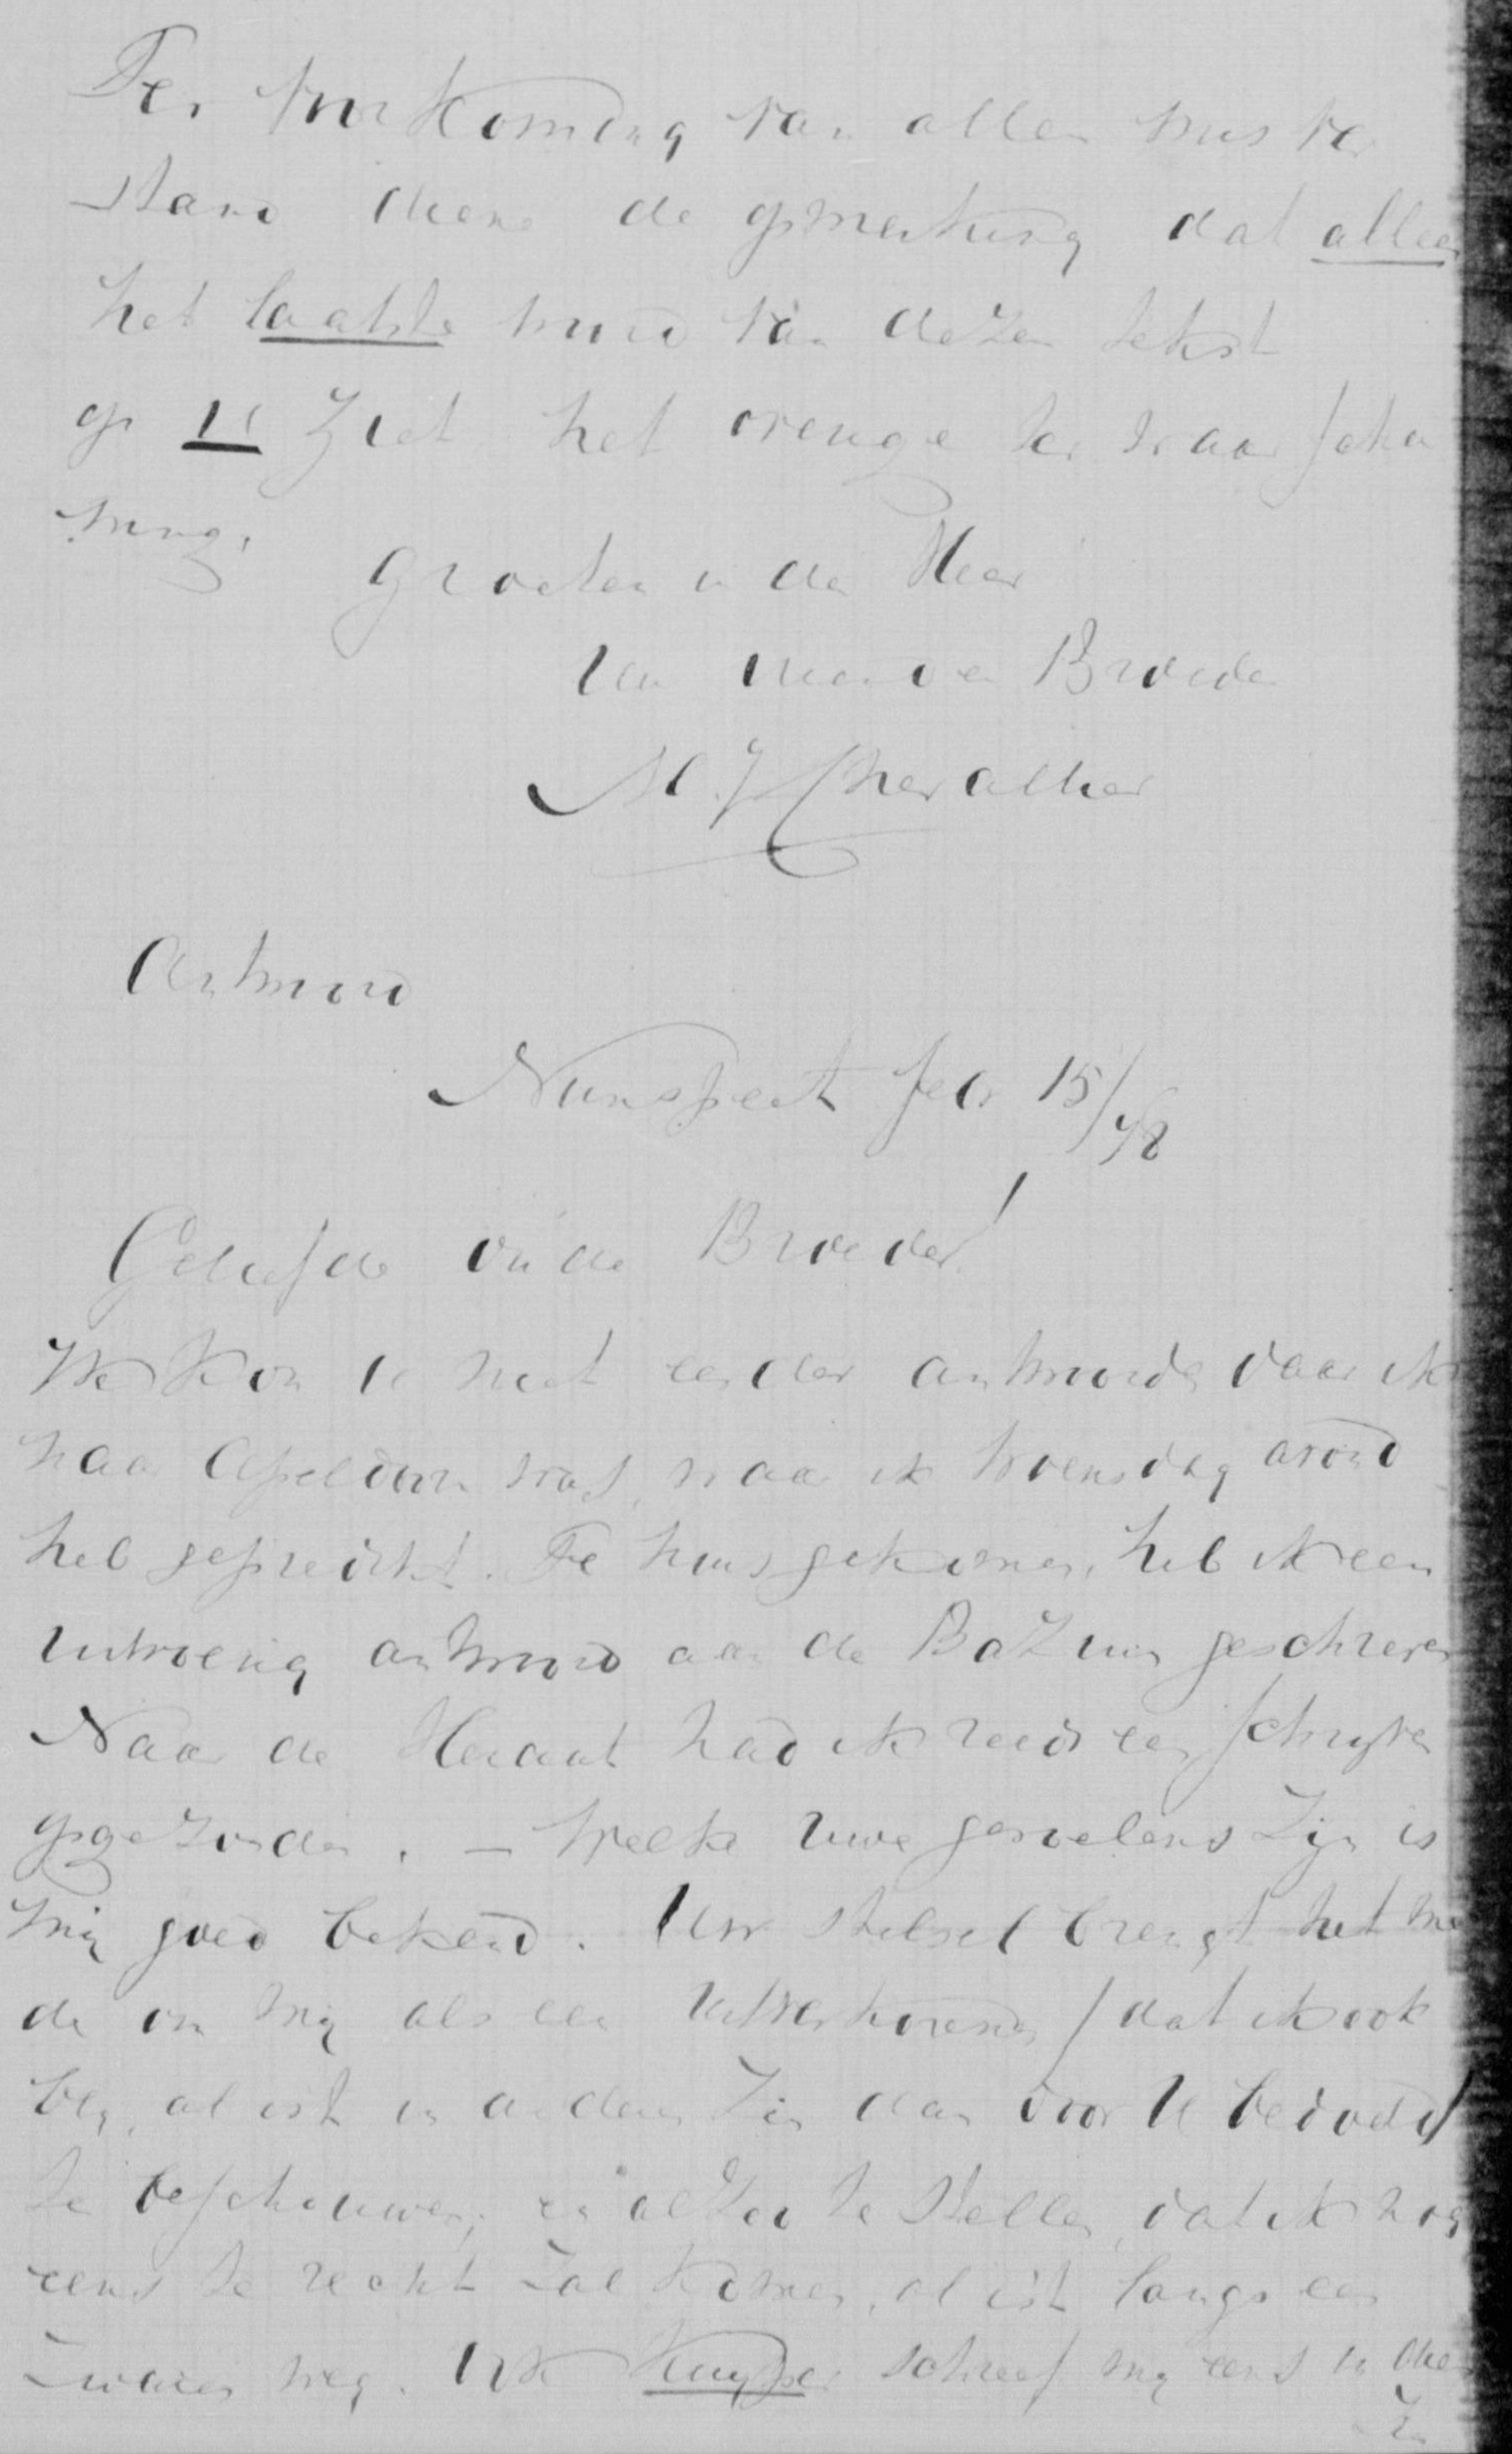 Ter voorkoming van allen misver
stand diene de opmerking dat alleen
het laatste woord van dezen tekst
op U ziet het overige ter waarschu
wing.
Groeten in den Heer
Uw Broeder
M. J. Chevallier
Antwoord
Nunspeet Febr 15/78
Geliefde oude Broeder!
Ik kon U niet eerder antwoorden daar ik
naar Apeldoorn was, waar ik woensdag avond
heb gepreekt. Te huis gekomen, heb ik een
uitvoerig antwoord aan de Bazuin geschreven
Naar de Heraut had ik reeds een schrijven
opgezonden. – Welke uwe gevoelens zijn is
mij goed bekend. Uw stelsel brengt het me
de om mij als een uitverkorene, (dat ik ook
ben, al is 't in anderen zin dan door U bedoeld)
te beschouwen, en alzoo te stellen, dat ik nog
eens te recht zal komen, al is 't langs een
zwaren weg. Ook Kuyper schreef mij eens in dien
z